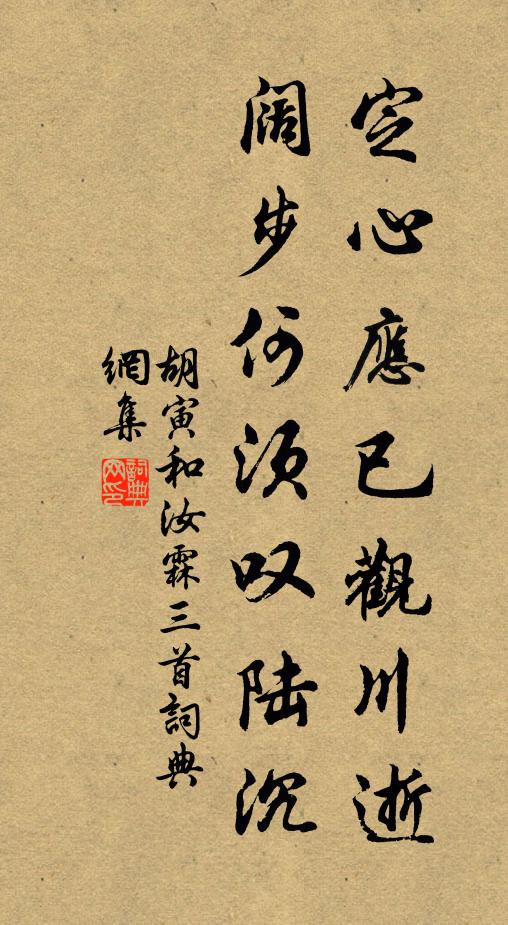 定心應已觀川逝
阔步何须叹陆沉
胡寅和汝霖三首詞典
網集
詞典網印